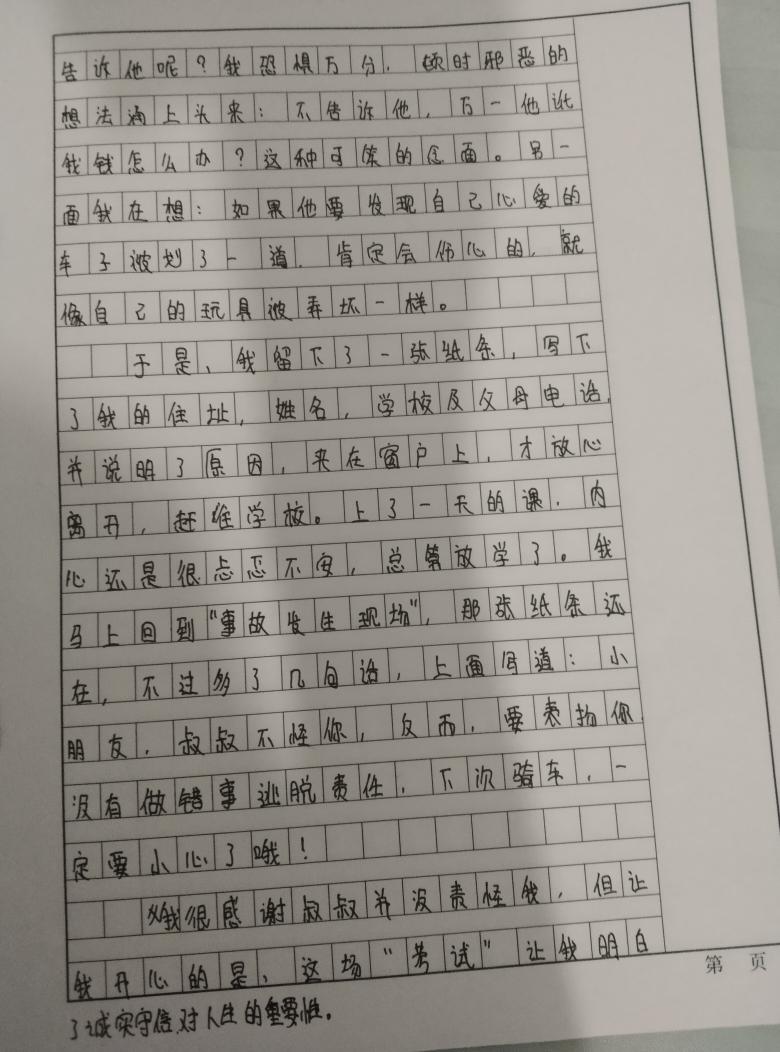 告诉他呢？我恐惧万分，顿时邪恶的
想法涌上头来：不告诉他，万一他讹
我钱怎么办？这种可笑的念面。另一
面我在想：如果他要发现自己心爱的
车子被划了一道，肯定会伤心的，就
像自己的玩具被弄坏一样。
于是，我留下了一张纸条，写下
了我的住址，姓名，学校及父母电话，
并说明了原因，夹在窗户上，才放心
离开，赶往学校。上了一天的课，内
心还是很忐忑不安，总算放学了。我
马上回到“事故发生现场”，那张纸条还
在，不过多了几句话，上面写道：小
朋友，叔叔不怪你，反而，要表扬你
没有做错事逃脱责任，下次骑车，一
定要小心了哦！
我很感谢叔叔并没责怪我，但让
我开心的是，这场“考试”让我明白
了诚实守信对人生的重要性。
第 页